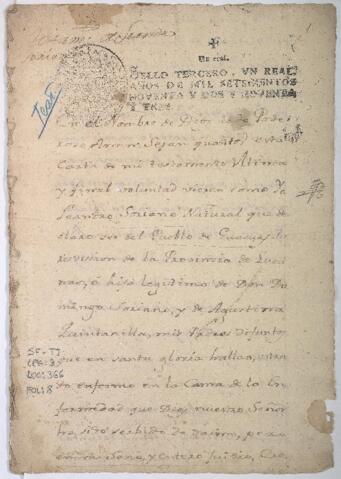 Un real.
SELLO TERCERO, VN REAL,
AÑOS DE MIL SETECIENTOS
NOVENTA Y DOS Y NOVENTA
Y TRES.
Test
En el Nombre de Dios
Sepan quantos esta
Carta de mi testamento Ultima
y final voluntad vieren como Yo
Leandro Soriano Natural que de
claro ser del Pueblo de
de la Provincia de
hijo legitimo de Don Do
mingo Soriano, y de Agustina
Quintanilla, mis Padres difuntos
que en santa gloria hallan, estan
do enfermo en la Cama de la En
fermedad que Dios nuestro Señor
ha sido servido de darme, pero
en mi sano, y entero juicio, Cre
SF-TT
LEG: 23
DOC: 366
FOL: 8